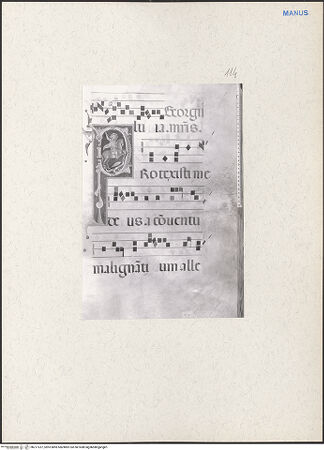 MANUS.
124
Georgii
lu ia. mr̃s.
Rotexisti me
de us a cōventu
malignãti um alle